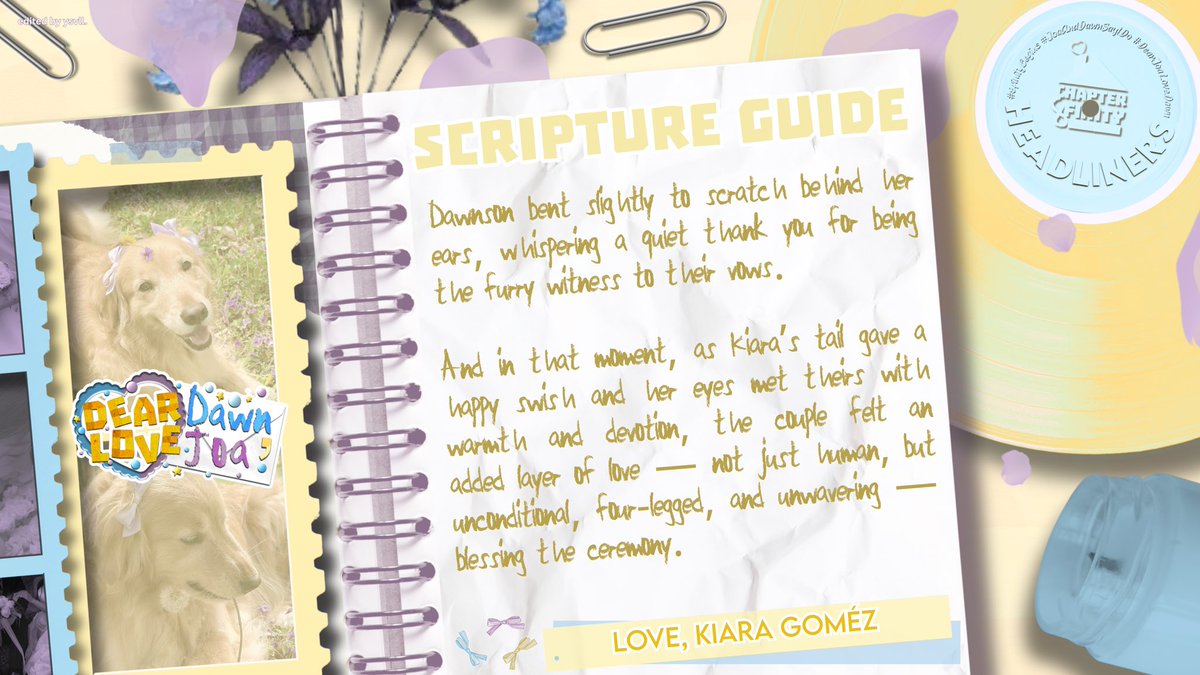 edited by ysvll.
SCRIPTURE GUIDE
Dawnson bent slightly to scratch behind her
ears, whispering a quiet thank you for being
the furry witness to their vows.
And in that moment, as Kiara's tail gave a
happy swish and her eyes met theirs with
warmth and devotion, the couple felt an
added layer of love — not just human, but
unconditional, four-legged, and unwavering —
blessing the ceremony.
LOVE, KIARA GOMÉZ
DEAR Dawn
LOVE Joa,
#JoaAndDawnSayIDo # DearJoaLoveDawn
CHAPTER
HEADLINERS